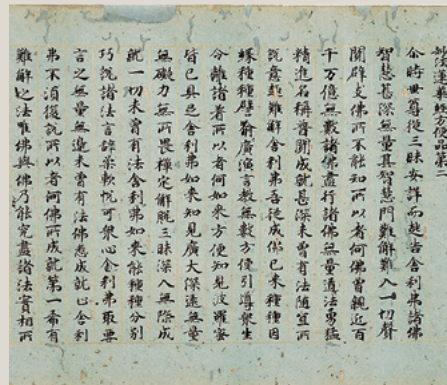 妙法蓮華経方便品第二
尓時世尊従三昧安詳而起告舎利弗諸佛
智慧甚深無量其智慧門難解難入一切聲
聞辟支佛所不能知所以者何佛曽親近百
千万億無數諸佛盡行諸佛無量道法勇猛
精進名稱普聞成就甚深未曽有法随冝所
説意趣難解舎利弗吾従成佛已来種種因
縁種種譬喩廣演言教無數方便引導衆生
令離諸著所以者何如来方便知見波羅蜜
皆已具足舎利弗如来知見廣大深遠無量
無礙力無所畏禪定解脱三昧深入無際成
就一切未曽有法舎利弗如来能種種分別
巧説諸法言辞柔軟悦可衆心舎利弗取要
言之無量無邊未曽有法佛悉成就止舎利
弗不須復説所以者何佛所成就第一希有
難解之法唯佛與佛乃能究盡諸法實相所